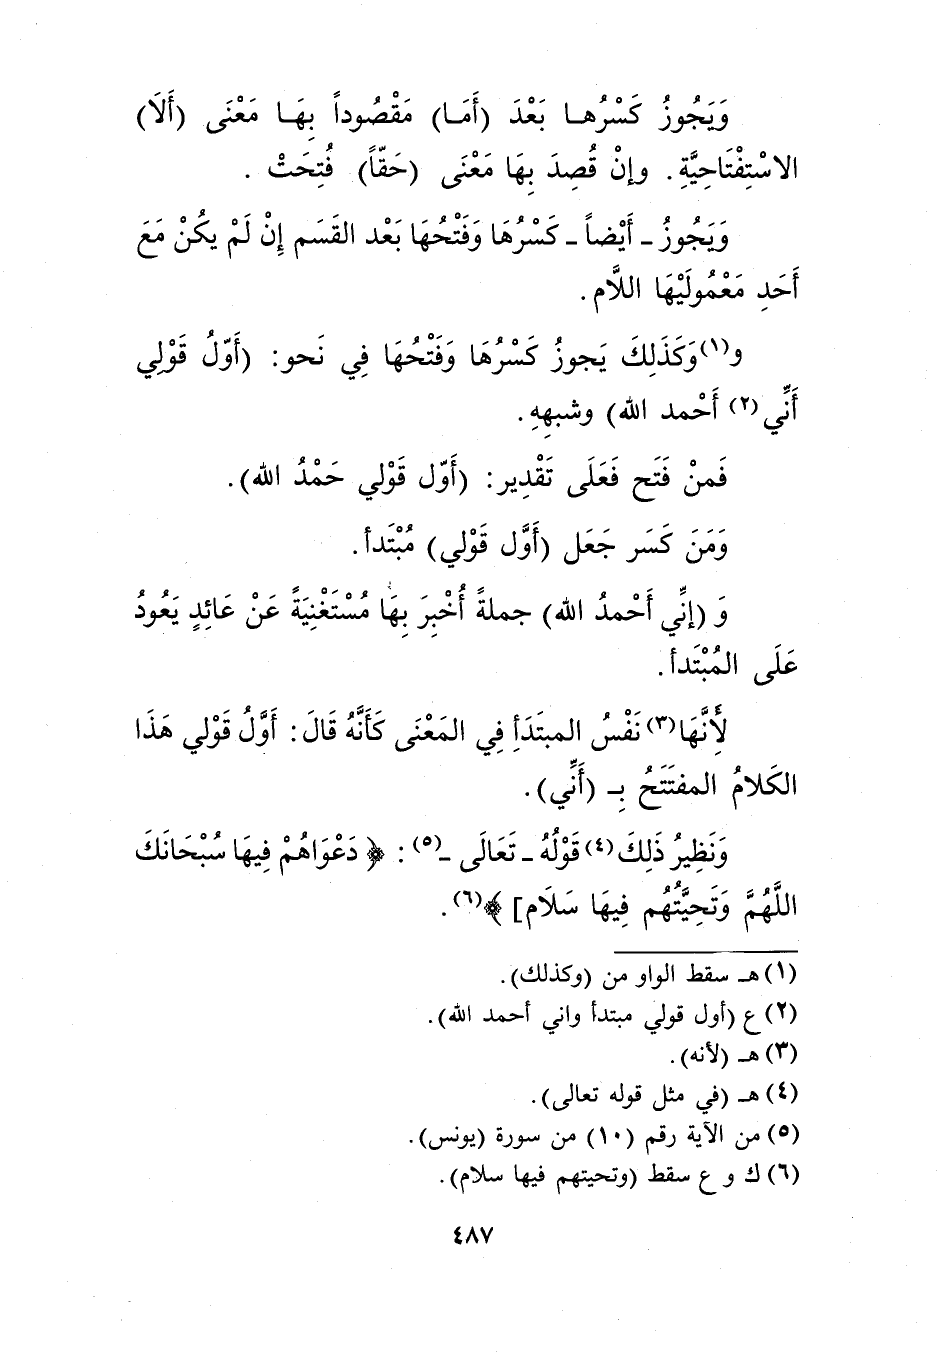 وَيَجُوزُ كَسْرُهـا بَعْدَ (أَمَـا) مَقْصُوداً بِهَـا مَعْنَى (أَلَا)
الاسْتِفْتَاحِيَّةِ. وإِنْ قُصِدَ بِهَا مَعْنَى (حَقّاً) فُتِحَتْ.
وَيَجُوزُ ـ أَيْضاً ـ كَسْرُهَا وَفَتْحُهَا بَعْد القَسَم إِنْ لَمْ يكُنْ مَعَ
أَحَدِ مَعْمُولَيْهَا اللَّام.
و(١)وَكَذَلِكَ يَجوزُ كَسْرُهَا وَفَتْحُهَا فِي نَحو: (أَوّلُ قَوْلِي
أَنِّي(٢) أَحْمد الله) وشبههِ.
فَمنْ فَتَح فَعَلَى تَقْدِير: (أَوّل قَوْلي حَمْدُ الله).
وَمَنَ كَسَر جَعَل (أَوَّل قَوْلي) مُبْتَدأ.
وَ (إنِّي أَحْمدُ الله) جملةً أُخْبِرَ بِهَا مُسْتَغْنِيَةً عَنْ عَائِدٍ يَعُودُ
عَلَى المُبْتَدأ.
لِأَنَّهَا(٣) نَفْسُ المبتَدَأِ فِي المَعْنَى كَأَنَّهُ قَالَ: أَوَّلُ قَوْلي هَذَا
الكَلامُ المفتَتَحُ بِـ (أَنِّي).
وَنَظِيرُ ذَلِكَ(٤) قَوْلُهُ ـ تَعَالَى ـ(٥): ﴿ دَعْوَاهُمْ فِيهَا سُبْحَانَكَ
اللَّهُمَّ وَتَحِيَّتُهُم فِيهَا سَلَام] ﴾(٦).
(١) هـ سقط الواو من (وكذلك).
(٢) ع (أول قولي مبتدأ واني أحمد الله).
(٣) هـ (لأنه).
(٤) هـ (في مثل قوله تعالى).
(٥) من الآية رقم (١٠) من سورة (يونس).
(٦) ك و ع سقط (وتحيتهم فيها سلام).
٤٨٧